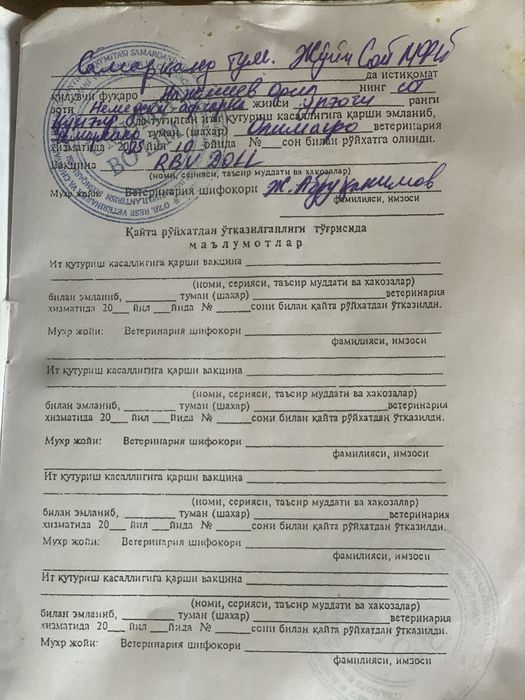 Самарканд тум. Жуйи Сой МФЙ
да истиқомат
қилувчи фуқаро нинг ит
зоти Немецкий овчарка жинси Урғочи ранги
да туғилган ити қутуриш касаллигига қарши эмланиб,
Самарканд туман (шахар) ветеринария
хизматида 2025 йил 10 ойида № сон билан рўйхатга олинди.
Вакцина RBV 2011
(номи, серияси, таъсир муддати ва хакозалар)
Мухр жойи: Ветеринария шифокори Ж. Абдухакимов
фамилияси, имзоси
Қайта рўйхатдан ўтказилганлиги тўғрисида
маълумотлар
Ит қутуриш касаллигига қарши вакцина
(номи, серияси, таъсир муддати ва хакозалар)
билан эмланиб, туман (шахар) ветеринария
хизматида 20 йил йида № сони билан қайта рўйхатдан ўтказилди.
Мухр жойи: Ветеринария шифокори
фамилияси, имзоси
Ит қутуриш касаллигига қарши вакцина
(номи, серияси, таъсир муддати ва хакозалар)
билан эмланиб, туман (шахар) ветеринария
хизматида 20 йил йида № сони билан қайта рўйхатдан ўтказилди.
Мухр жойи: Ветеринария шифокори
фамилияси, имзоси
Ит қутуриш касаллигига қарши вакцина
(номи, серияси, таъсир муддати ва хакозалар)
билан эмланиб, туман (шахар) ветеринария
хизматида 20 йил йида № сони билан қайта рўйхатдан ўтказилди.
Мухр жойи: Ветеринария шифокори
фамилияси, имзоси
Ит қутуриш касаллигига қарши вакцина
(номи, серияси, таъсир муддати ва хакозалар)
билан эмланиб, туман (шахар) ветеринария
хизматида 20 йил йида № сони билан қайта рўйхатдан ўтказилди.
Мухр жойи: Ветеринария шифокори
фамилияси, имзоси